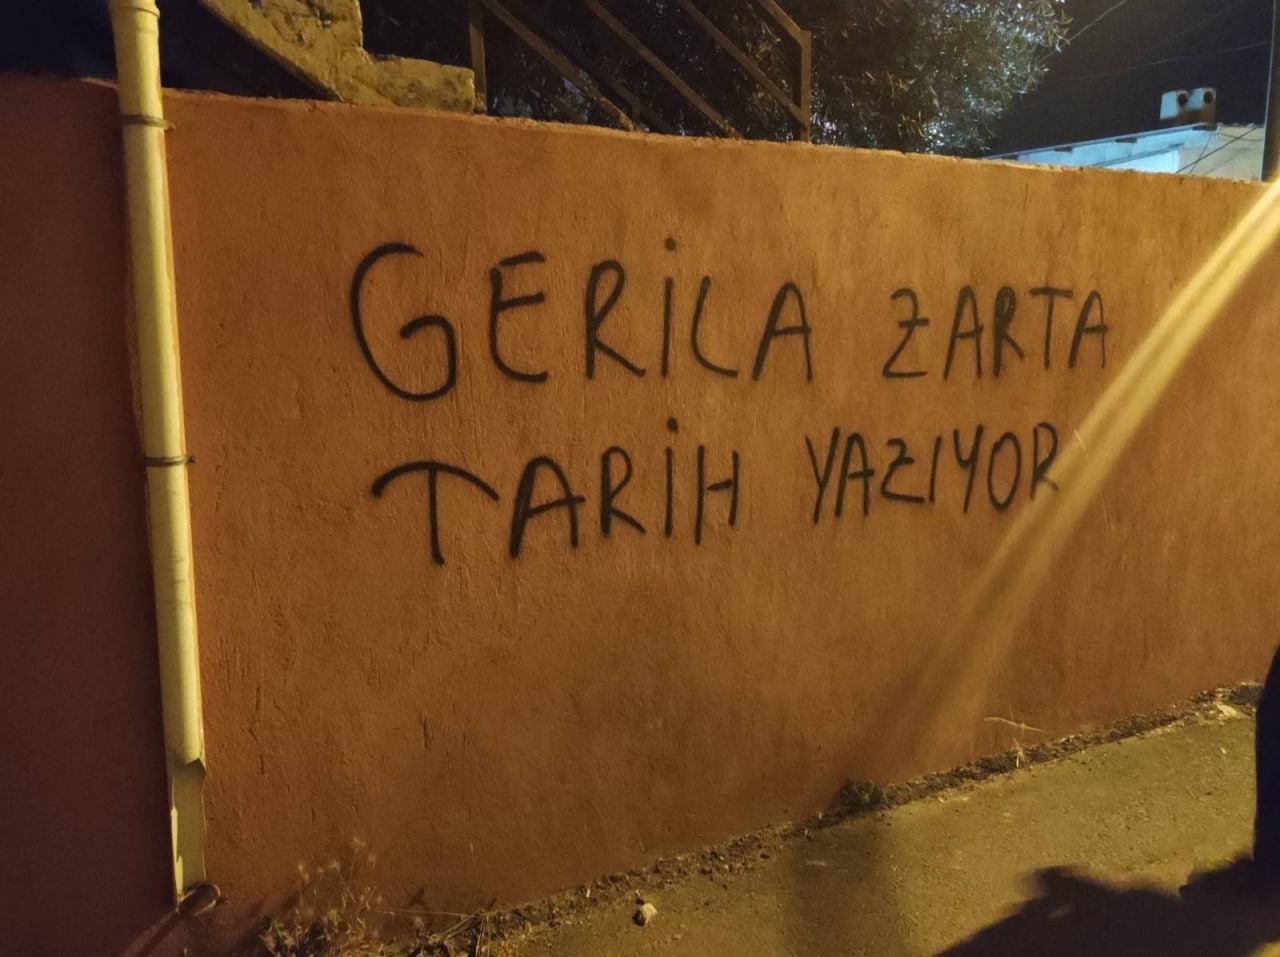 GERİLA ZARTA
TARİH YAZIYOR